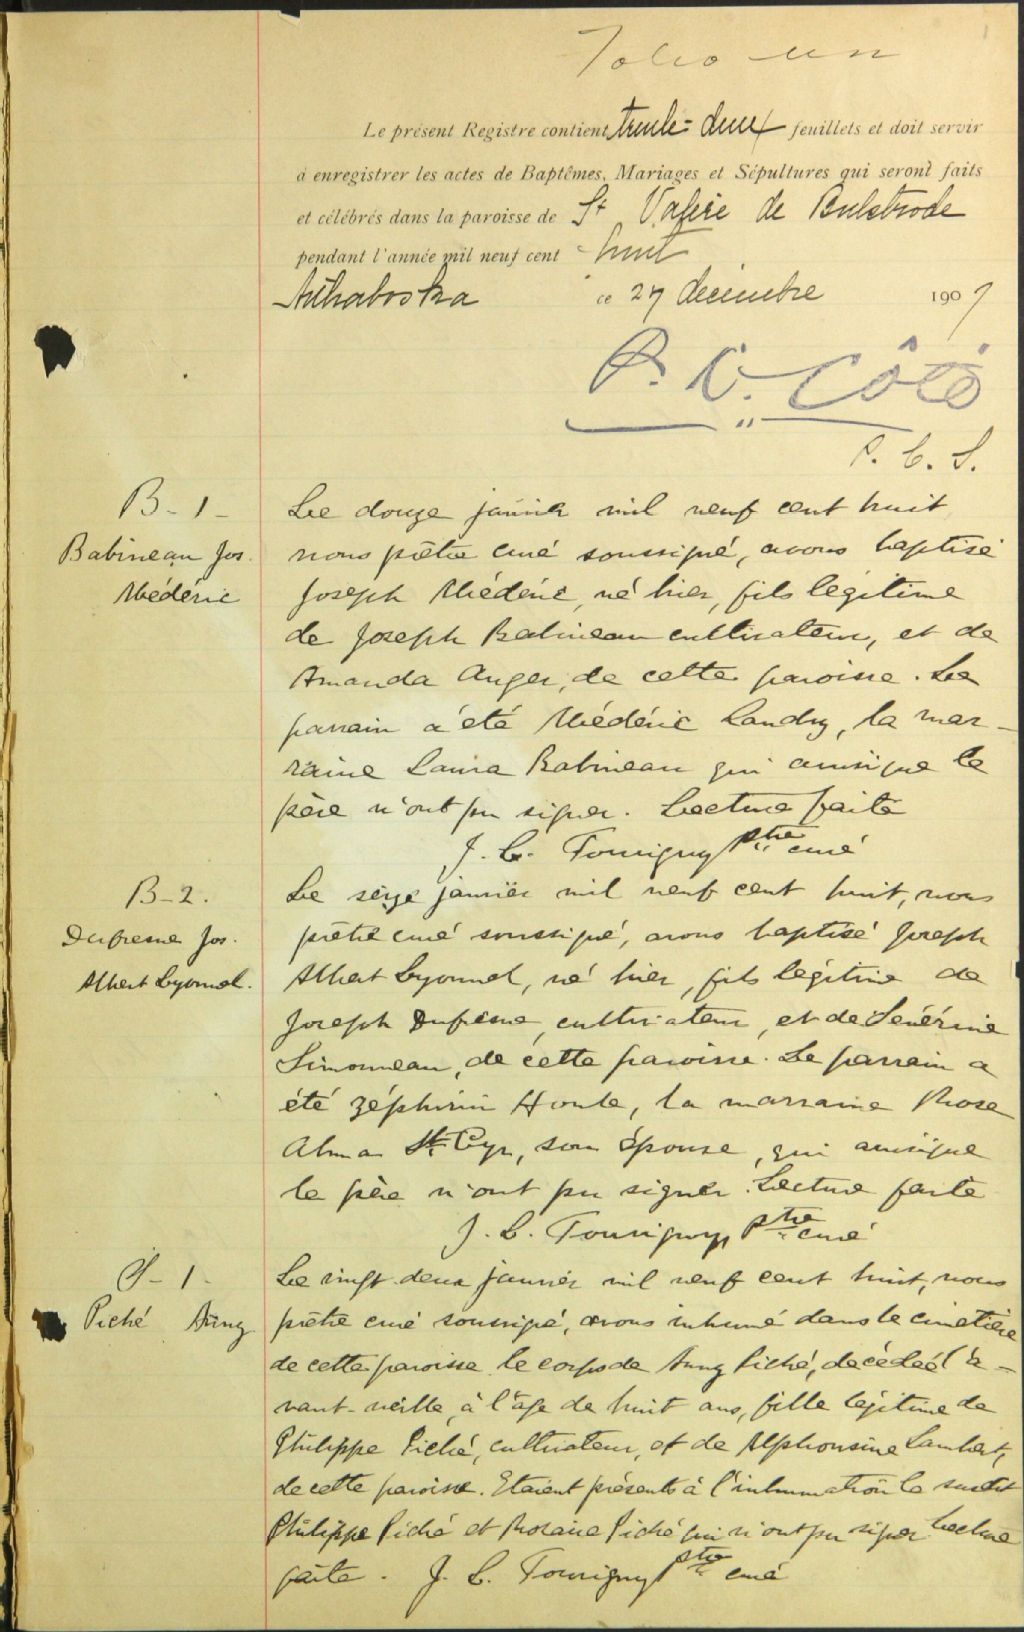 Folio un
Le présent Registre contient trente-deux feuillets et doit servir
à enregistrer les actes de Baptêmes, Mariages et Sépultures qui seront faits
et célébrés dans la paroisse de St Valère de Bulstrode
pendant l'année mil neuf cent huit
Arthabaska ce 27 décembre 1907
P. C. Côté
P. C. S.
B-1-
Babineau Jos.
Médéric
Le douze janvier mil neuf cent huit
nous prêtre curé soussigné, avons baptisé
Joseph Médéric, né hier, fils légitime
de Joseph Babineau cultivateur, et de
Amanda Auger, de cette paroisse. Le
parrain a été Médéric Landry, la mar-
raine Laura Babineau qui ainsi que le
père n'ont pu signer. Lecture faite
J. C. Tourigny Ptre curé
B-2.
Dufresne Jos.
Albert Lyonnel.
Le seize janvier mil neuf cent huit, nous
prêtre curé soussigné, avons baptisé Joseph
Albert Lyonnel, né hier, fils légitime de
Joseph Dufresne, cultivateur, et de Sévérine
Simonneau, de cette paroisse. Le parrain a
été Zéphirin Houle, la marraine Rose
Alma St Cyr, son épouse, qui ainsi que
le père n'ont pu signer. Lecture faite
J. C. Tourigny Ptre curé
S-1-
Piché Anny
Le vingt-deux janvier mil neuf cent huit, nous
prêtre curé soussigné, avons inhumé dans le cimetière
de cette paroisse le corps de Anny Piché, décédée l'a-
vant-veille, à l'âge de huit ans, fille légitime de
Philippe Piché, cultivateur, et de Alphonsine Lambert,
de cette paroisse. Etaient présents à l'inhumation le susdit
Philippe Piché et Rosaire Piché qui n'ont pu signer Lecture
faite. J. C. Tourigny Ptre curé